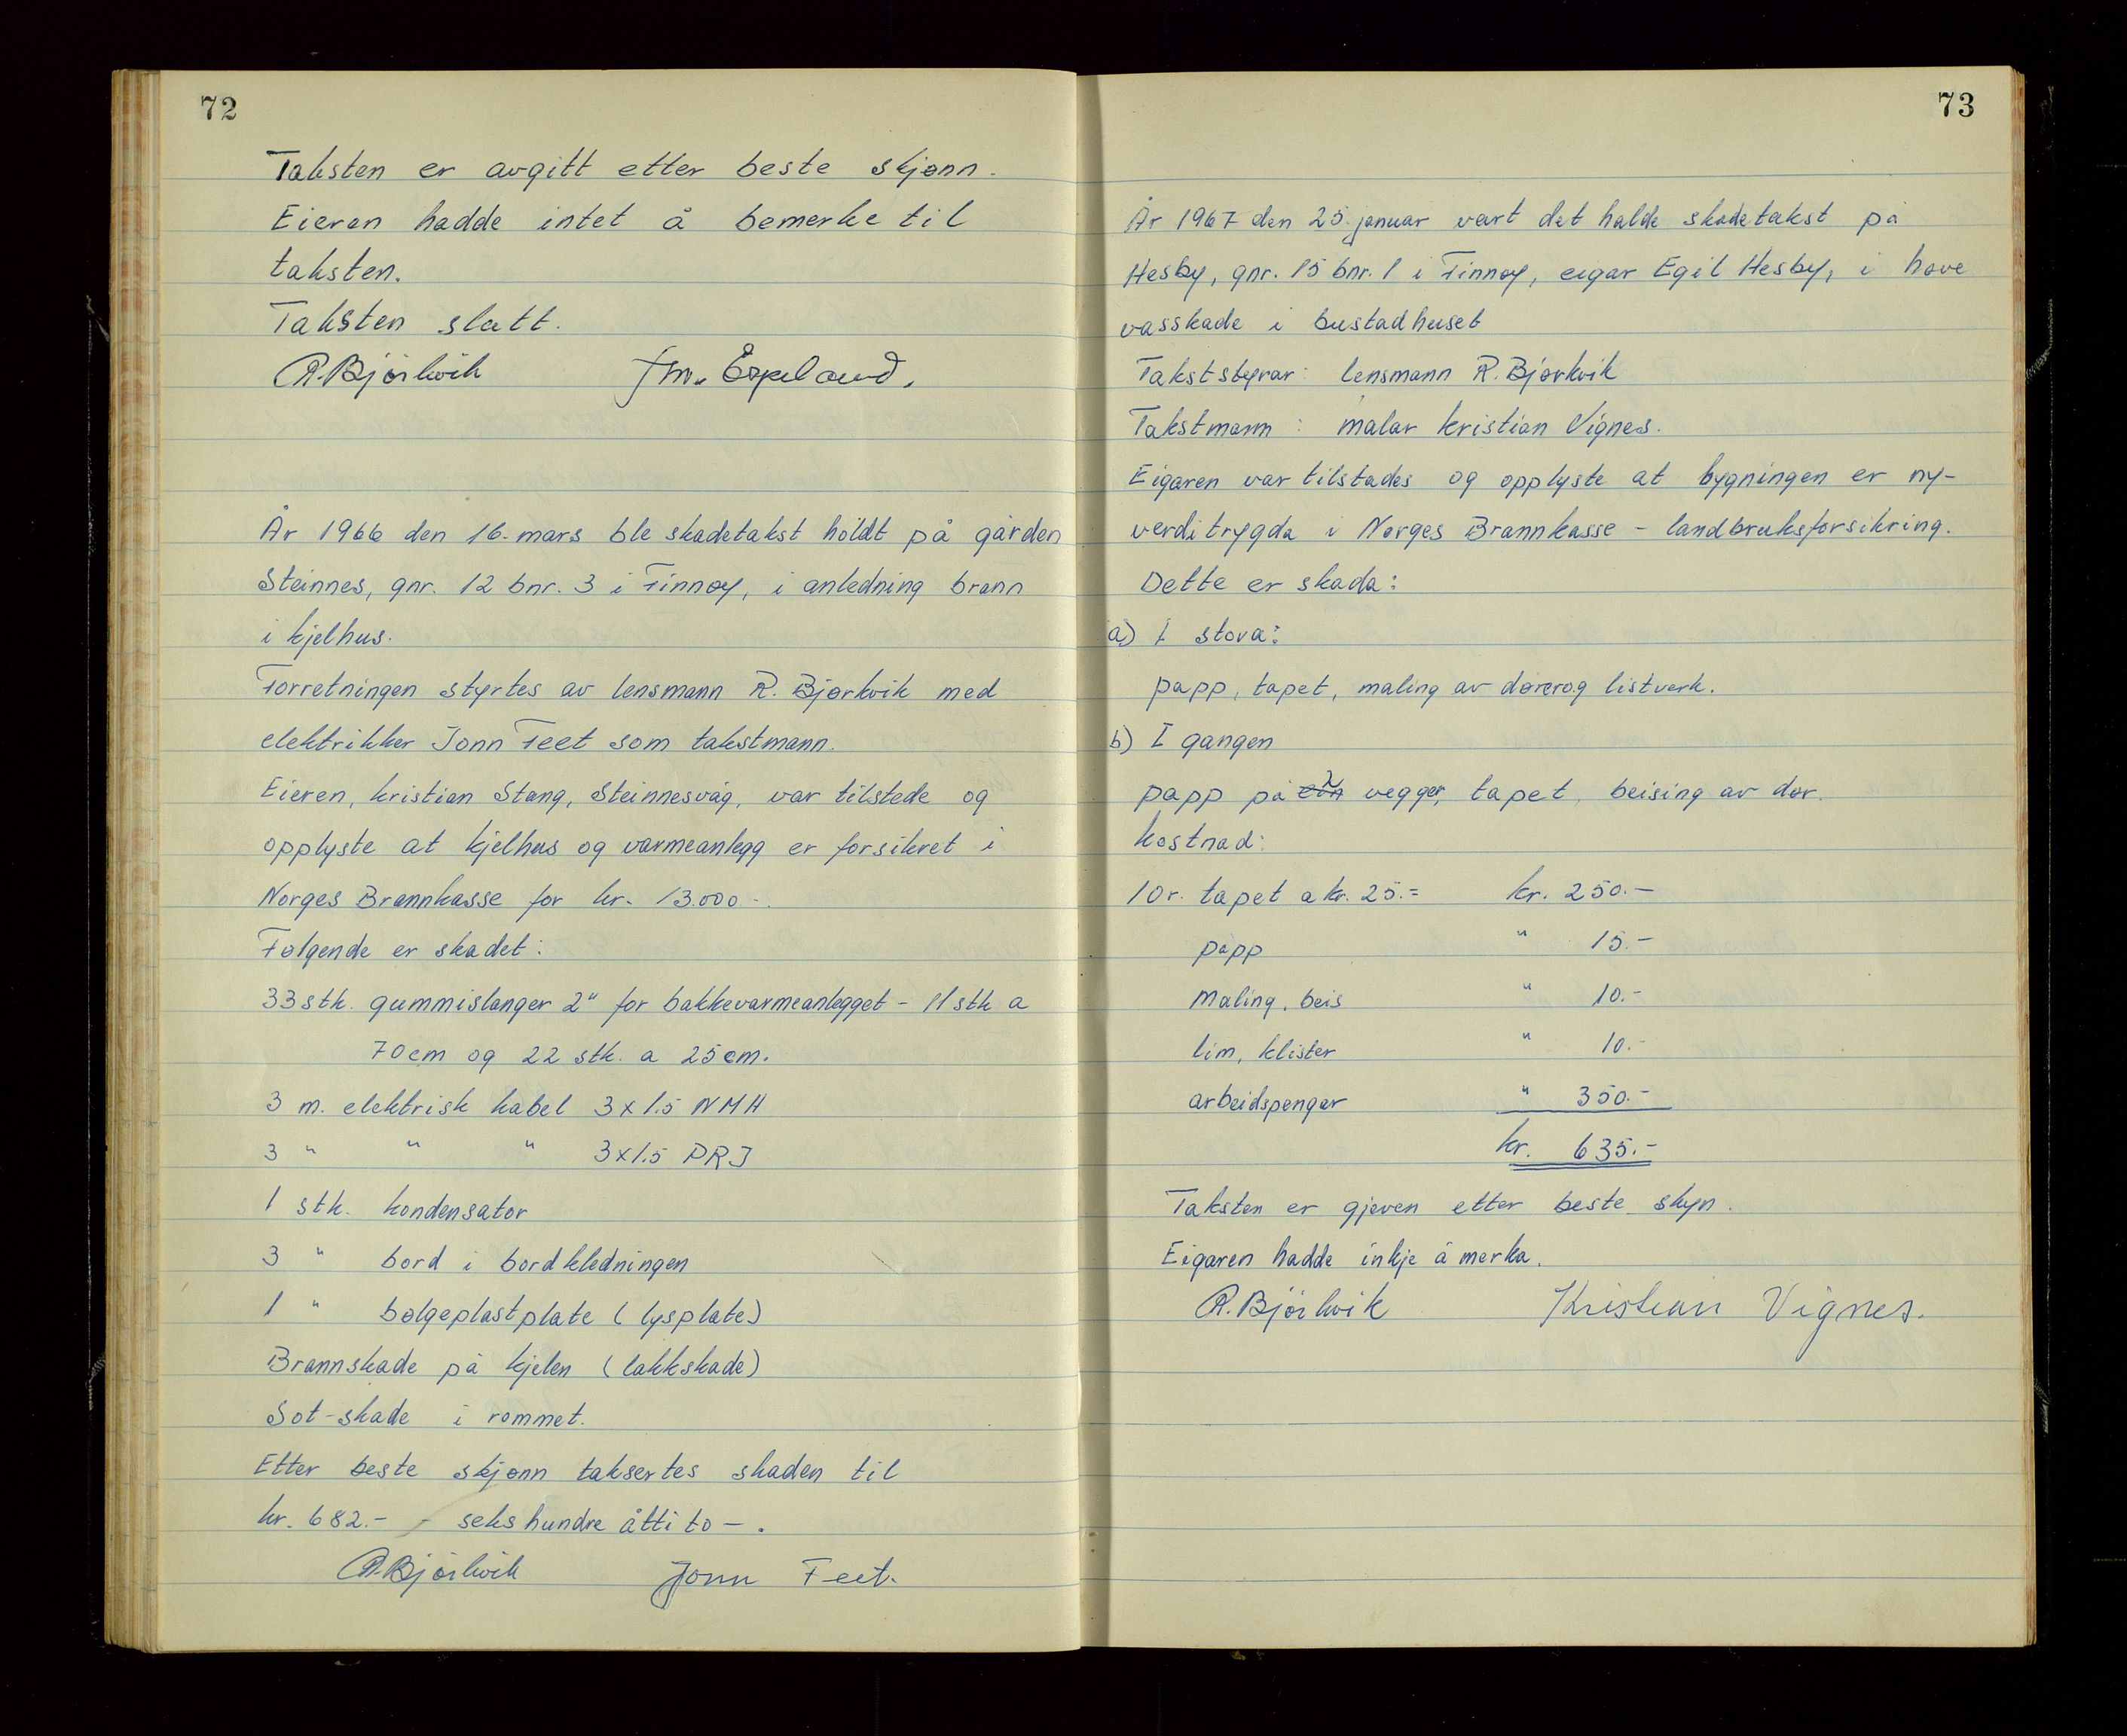 72
Taksten er avgitt etter beste skjønn.
Eieren hadde intet å bemerke til
taksten.
Taksten slutt.
R. Bjørkvik
År 1966 den 16. mars ble skadetakst holdt på gården
Steinnes, gnr. 12 bnr. 3 i Finnøy, i anledning brann
i kjelhus.
Forretningen styrtes av lensmann R. Bjørkvik med
elektrikker Jonn Feet som takstmann.
Eieren, Kristian Stang, Steinnesvåg, var tilstede og
opplyste at kjelhus og varmeanlegg er forsikret i
Norges Brannkasse for kr. 13.000.-.
Følgende er skadet:
33 stk. gummislanger 2" for bakkevarmeanlegget - 11 stk a
70 cm og 22 stk. a 25 cm.
3 m. elektrisk kabel 3 x 1.5 NMH
3 " " " 3 x 1.5 PRJ
1 stk. kondensator
3 " bord i bordkledningen
1 " bølgeplastplate (lysplate)
Brannskade på kjelen (lakkskade)
Sot-skade i rommet.
Etter beste skjønn taksertes skaden til
kr. 682.- - sekshundre åttito -.
R. Bjørkvik Jonn Feet.
73
År 1967 den 25. januar vart det halde skadetakst på
Hesby, gnr. 15 bnr. 1 i Finnøy, eigar Egil Hesby, i høve
vasskade i bustadhuset
Takststyrar: lensmann R. Bjørkvik
Takstmann: malar Kristian Vignes.
Eigaren var tilstades og opplyste at bygningen er ny-
verditrygda i Norges Brannkasse - landbruksforsikring.
Dette er skada:
a) I stova:
papp, tapet, maling av dører og listverk.
b) I gangen
papp på 2 vegger, tapet, beising av dør.
Kostnad:
10 r. tapet a kr. 25.= kr. 250.-
papp " 15.-
maling, beis " 10.-
lim, klister " 10.-
arbeidspengar " 350.-
kr. 635.-
Taksten er gjeven etter beste skyn.
Eigaren hadde inkje å merka.
R. Bjørkvik Kristian Vignes.